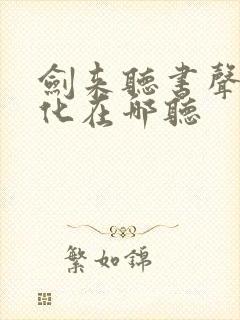 劍来聽書聲
化在哪聽
繁如錦